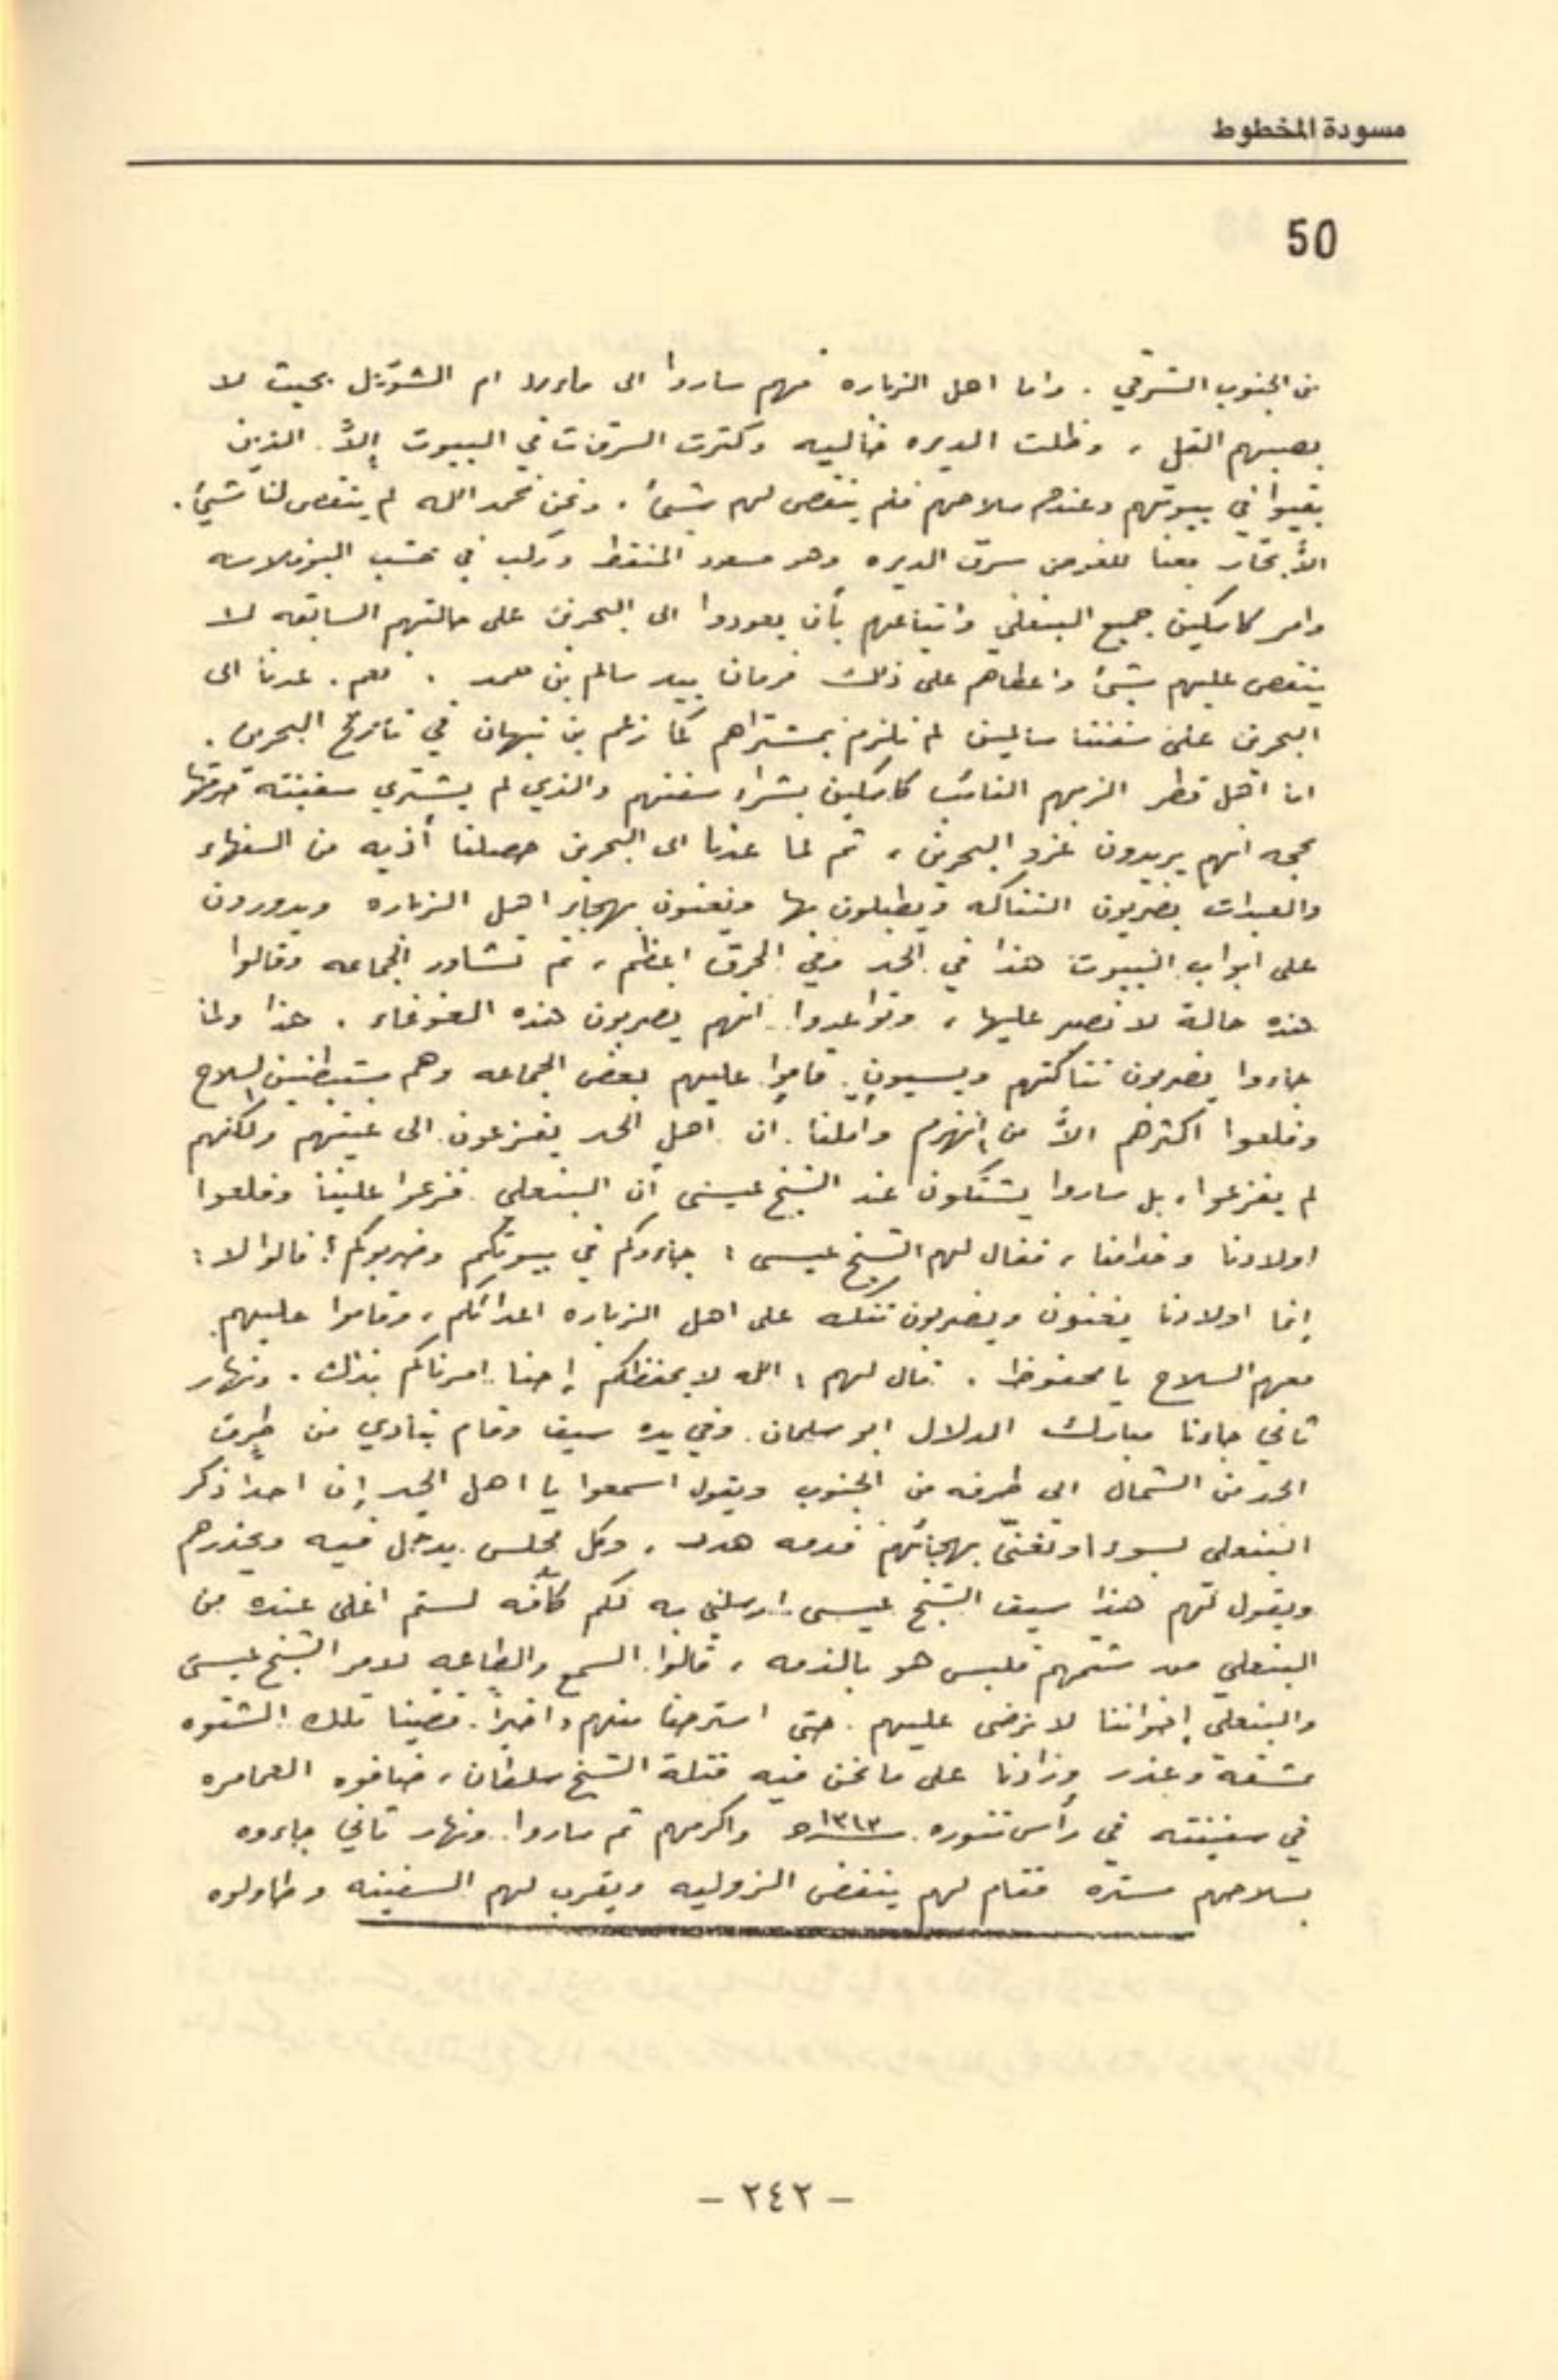 مسودة المخطوط
50
من الجنوب الشرقي . واما اهل الزباره فهم ساروا الى ماورد ام الشويل بحيث لا
يصيبهم القبل ، وظلت الديره خاليه وكثرت السرقات في البيوت إلاَّ الذين
بقيوا في بيوتهم وعندهم سلاحهم فلم ينتقص لهم شيئ . ونحن نحمد الله لم ينتقص لنا شيئ .
الاَّ بخار معنا للغوص سرق الديره وهو مسعود المنقط وركب في خشب البوفلاسه
وامر كابتن جميع البنعلي واتباعهم بأن يعودوا الى البحرين على حالتهم السابقه لا
ينتقص عليهم شيئ واعطاهم على ذلك فرمان بيد سالم بن محمد . نعم . عدنا الى
البحرين على سفننا سالمين لم نلزم بمشتراهم كما زعم بن نبهان في تاريخ البحرين .
ان اهل قطر الزمهم القائب كابتن بشراء سفنهم والذي لم يشتري سفينته حرقها
بحجه انهم يريدون غزو البحرين ، ثم لما عدنا الى البحرين حصلنا أذيه من السفهاء
والعبدات يضربون التناكه ويطبلون بها ويغنون بهجاير اهل الزباره ويدورون
على ابواب البيوت هذا في الحد وفي المحرق اعظم ، ثم تشاور الجماعه وقالوا
هذه حالة لا نصبر عليها ، وتواعدوا انهم يضربون هذه الغوغاء . هذا ولما
جاءوا يضربون تناكتهم ويسبون . قاموا عليهم بعض الجماعه وهم مستبطنين السلاح
وفلعوا اكثرهم الاَّ من انهزم واملنا . ان اهل الحد يفزعون الى عيبتهم ولكنهم
لم يفزعوا ، بل ساروا يشتكون عند الشيخ عيسى أن البنعلي فزعوا علينا وفلعوا
اولادنا وخدامنا ، فقال لهم الشيخ عيسى : جاءوكم في بيوتكم وضربوكم ؟ قالوا لا :
إنما اولادنا يغنون ويضربون تنك على اهل الزباره اعدائكم ، وقاموا عليهم
معهم السلاح يا محفوظ . قال لهم : الله لا يحفظكم إحنا امرناكم بذلك . ونهار
ثاني جاءنا مبارك الدلال ابو سلمان وفي يده سيف وقام ينادي من طرف
الحد من الشمال الى طرفه من الجنوب ويقول اسمعوا يا اهل الحد إن احداً ذكر
البنعلي بسوء او تغنى بهجائهم فدمه هدر . وكل مجلس يدخل فيه ويحذرهم
ويقول لهم هذا سيف الشيخ عيسى ارسلني به لكم كأنه لستم اغلى عنده من
البنعلي من شتمهم فليس هو بالذمه ، قالوا السمع والطاعه لامر الشيخ عيسى
والبنعلي إخواننا لا نرضى عليهم . حتى استرحنا منهم واخيراً . قضينا تلك الشتوه
مشقة وعذر وزادنا على ما نحن فيه قتلة الشيخ سلطان ، ضافوه العمامره
في سفينته في رأس تنوره سـ١٣١٣ـه واكرمهم ثم ساروا . ونهار ثاني جاءوه
بسلاحهم مستره فقام لهم ينفض الزوليه ويقرب لهم السفينه وطاولوه
- ٢٤٢ -